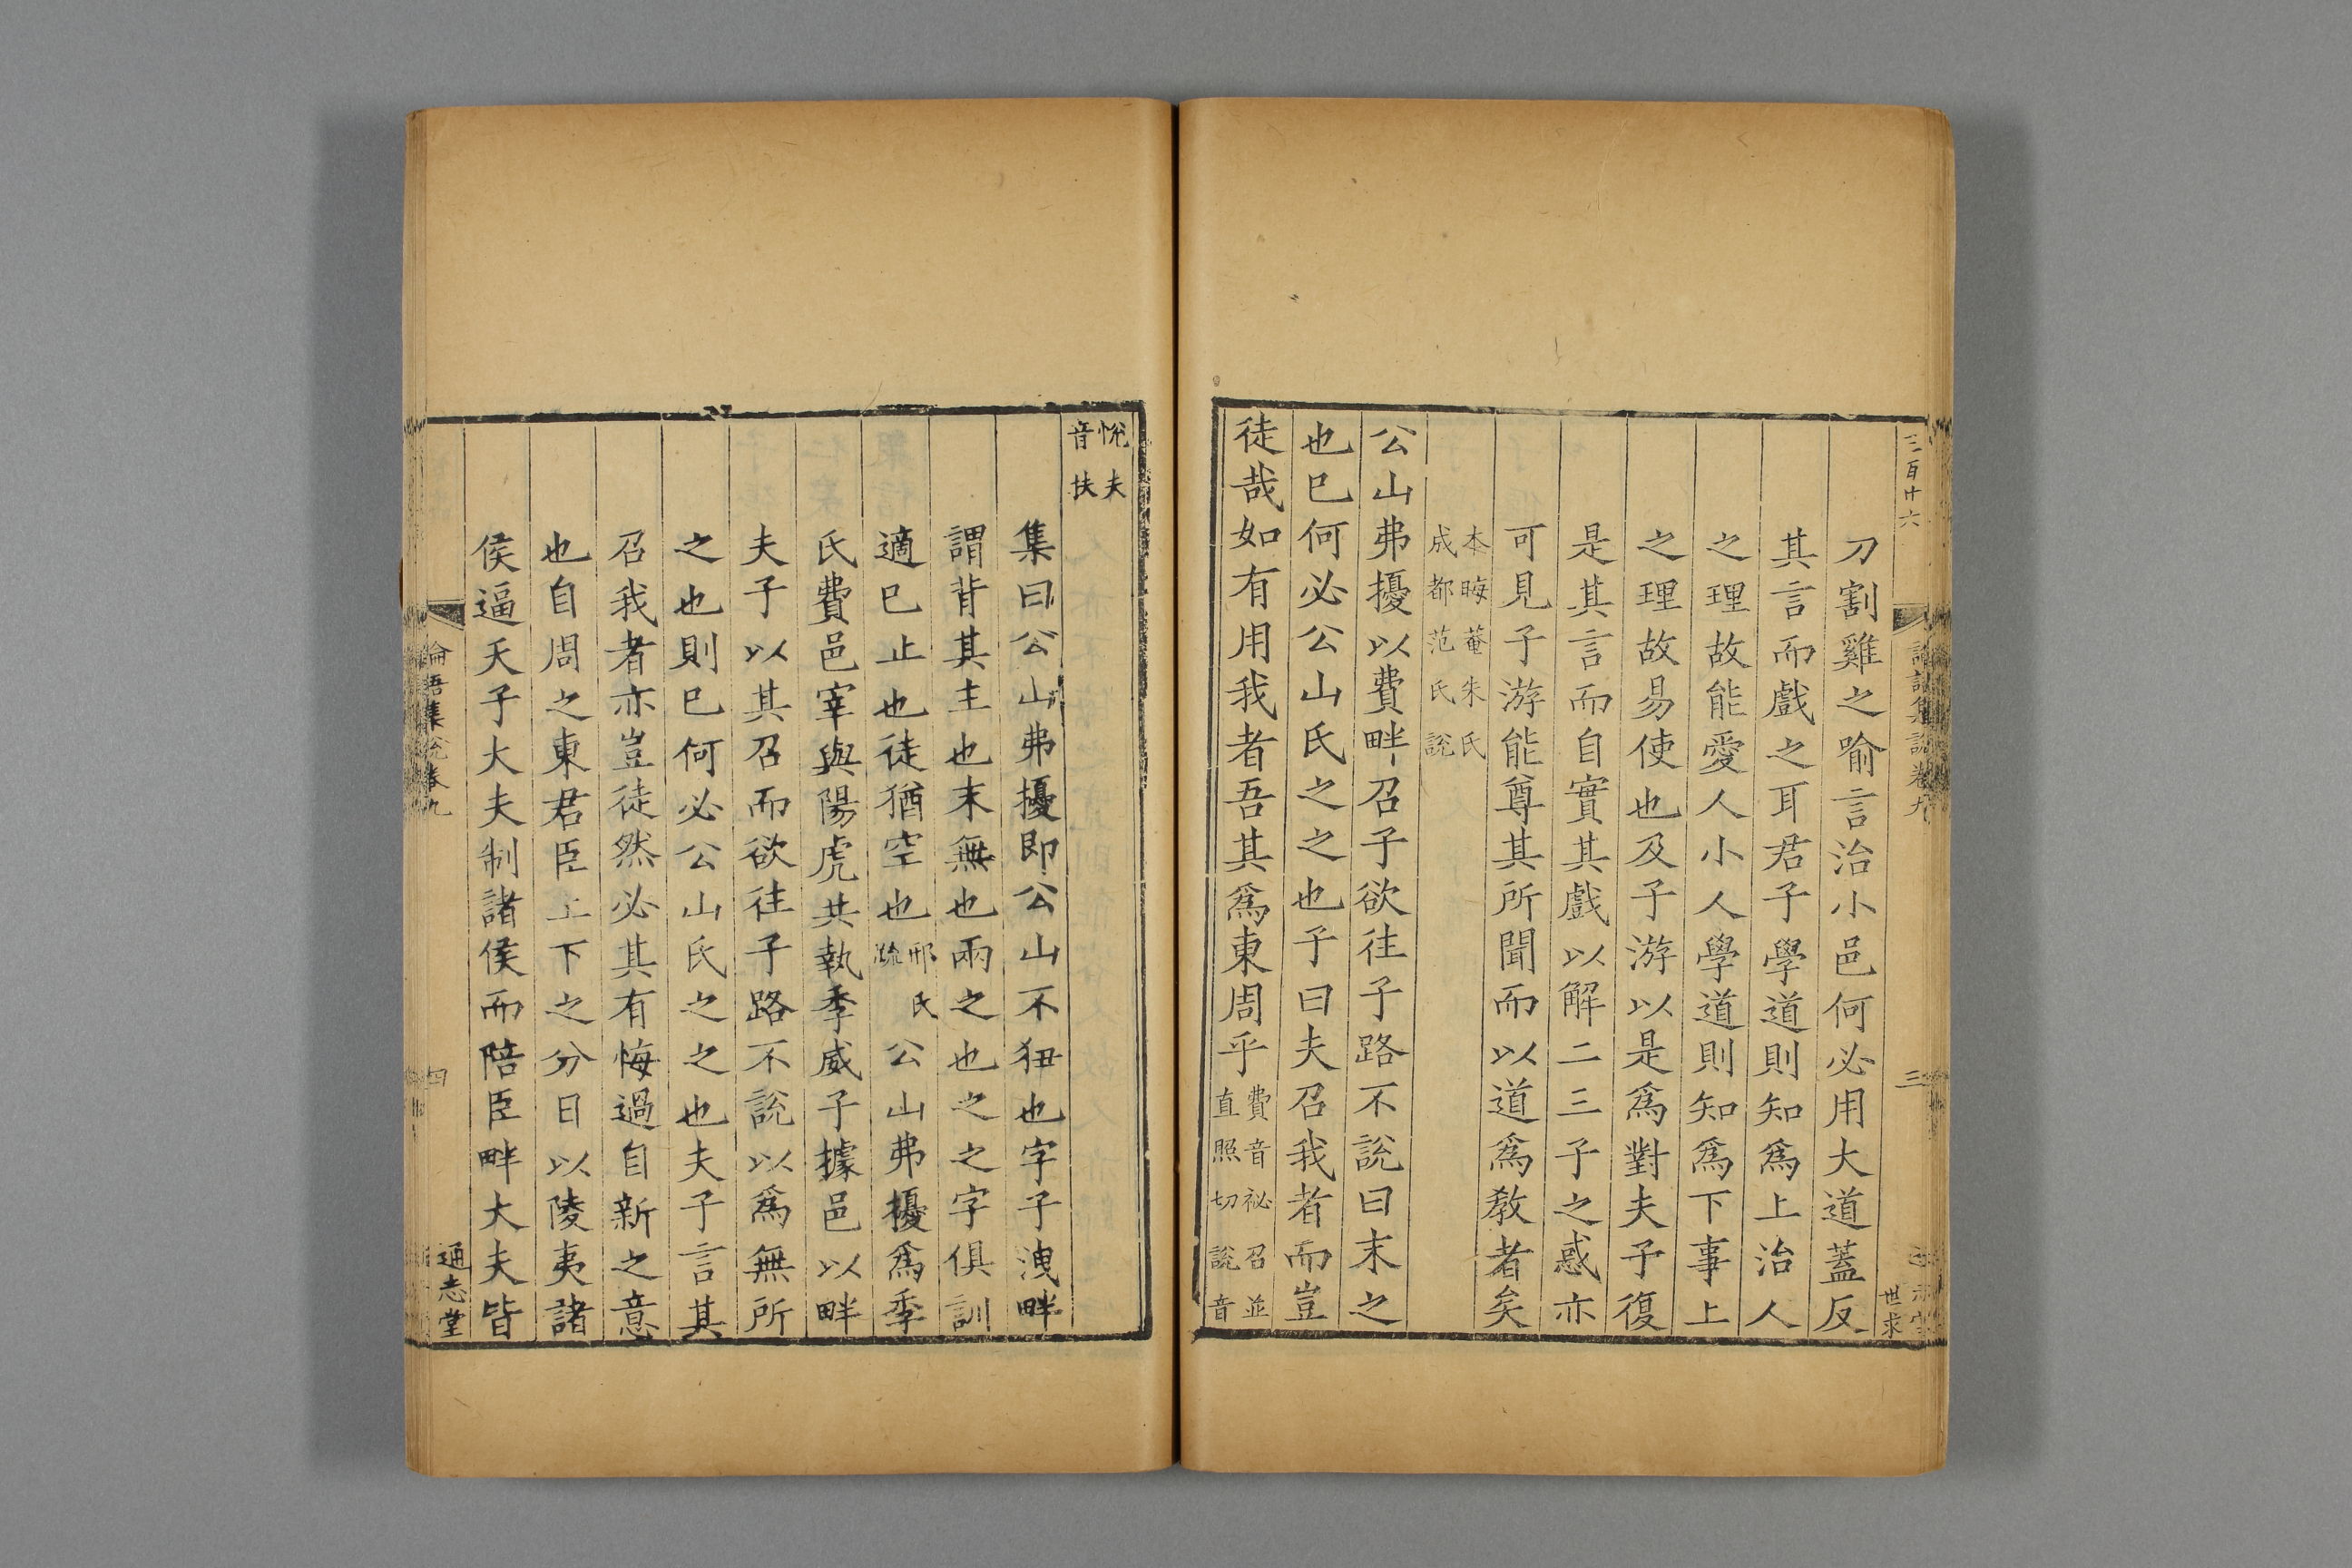 三百十六
語集說卷九
三
世求
刀割雞之喻言治小邑何必用大道蓋反
其言而戲之耳君子學道則知爲上治人
之理故能愛人小人學道則知爲下事上
之理故易使也及子游以是爲對夫子復
是其言而自實其戲以解二三子之惑亦
可見子游能尊其所聞而以道爲教者矣
本晦菴朱氏
成都范氏說
公山弗擾以費畔召子欲往子路不說曰末之
也巳何必公山氏之之也子曰夫召我者而豈
徒哉如有用我者吾其爲東周乎費音祕召並
直照切說音
悅夫
音扶
集曰公山弗擾即公山不狃也字子洩畔
謂背其主也末無也兩之也之之字俱訓
適巳止也徒猶空也邢氏
疏
公山弗擾爲季
氏費邑宰與陽虎共執季威子據邑以畔
夫子以其召而欲往子路不說以爲無所
之也則巳何必公山氏之之也夫子言其
召我者亦豈徒然必其有悔過自新之意
也自周之東君臣上下之分日以陵夷諸
侯逼天子大夫制諸侯而陪臣畔大夫皆
論語集說卷九
四
通志堂